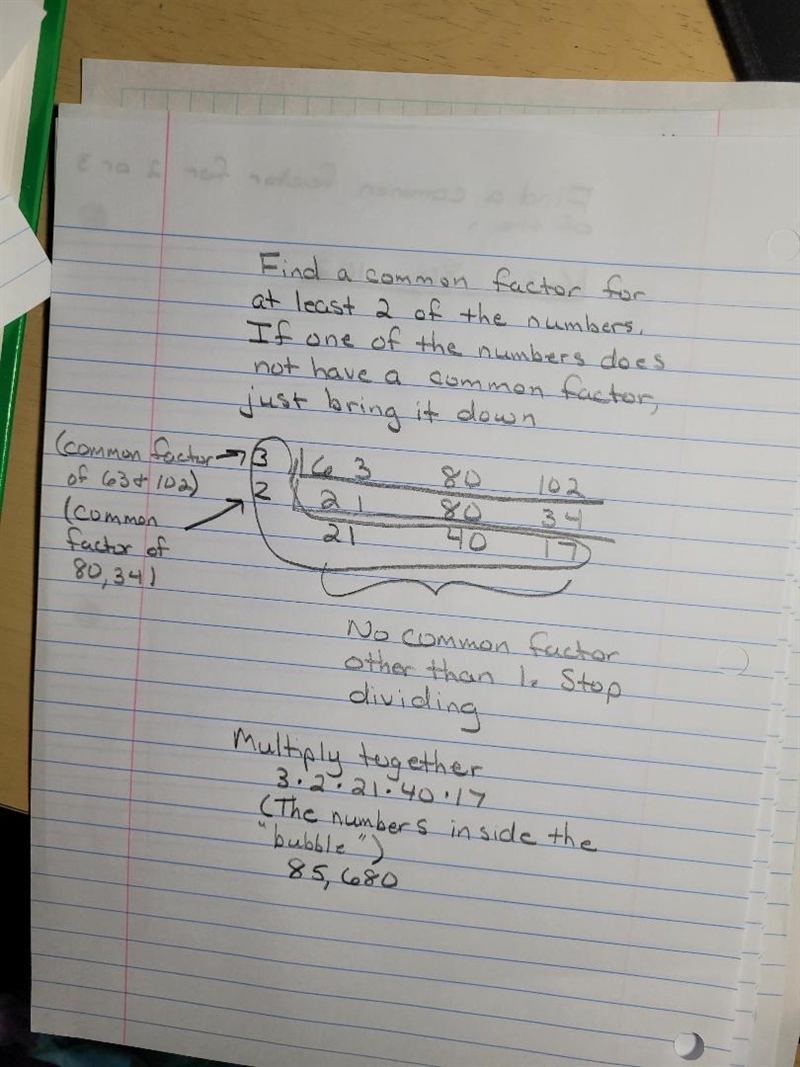 Find a common factor for
at least 2 of the numbers.
If one of the numbers does
not have a common factor,
just bring it down
(common factor → 3 63 80 102
of 63 & 102) 2 21 80 34
(common 21 40 17
factor of
80, 34)
No common factor
other than 1. Stop
dividing
Multiply together
3 · 2 · 21 · 40 · 17
(The numbers inside the
"bubble")
85,680